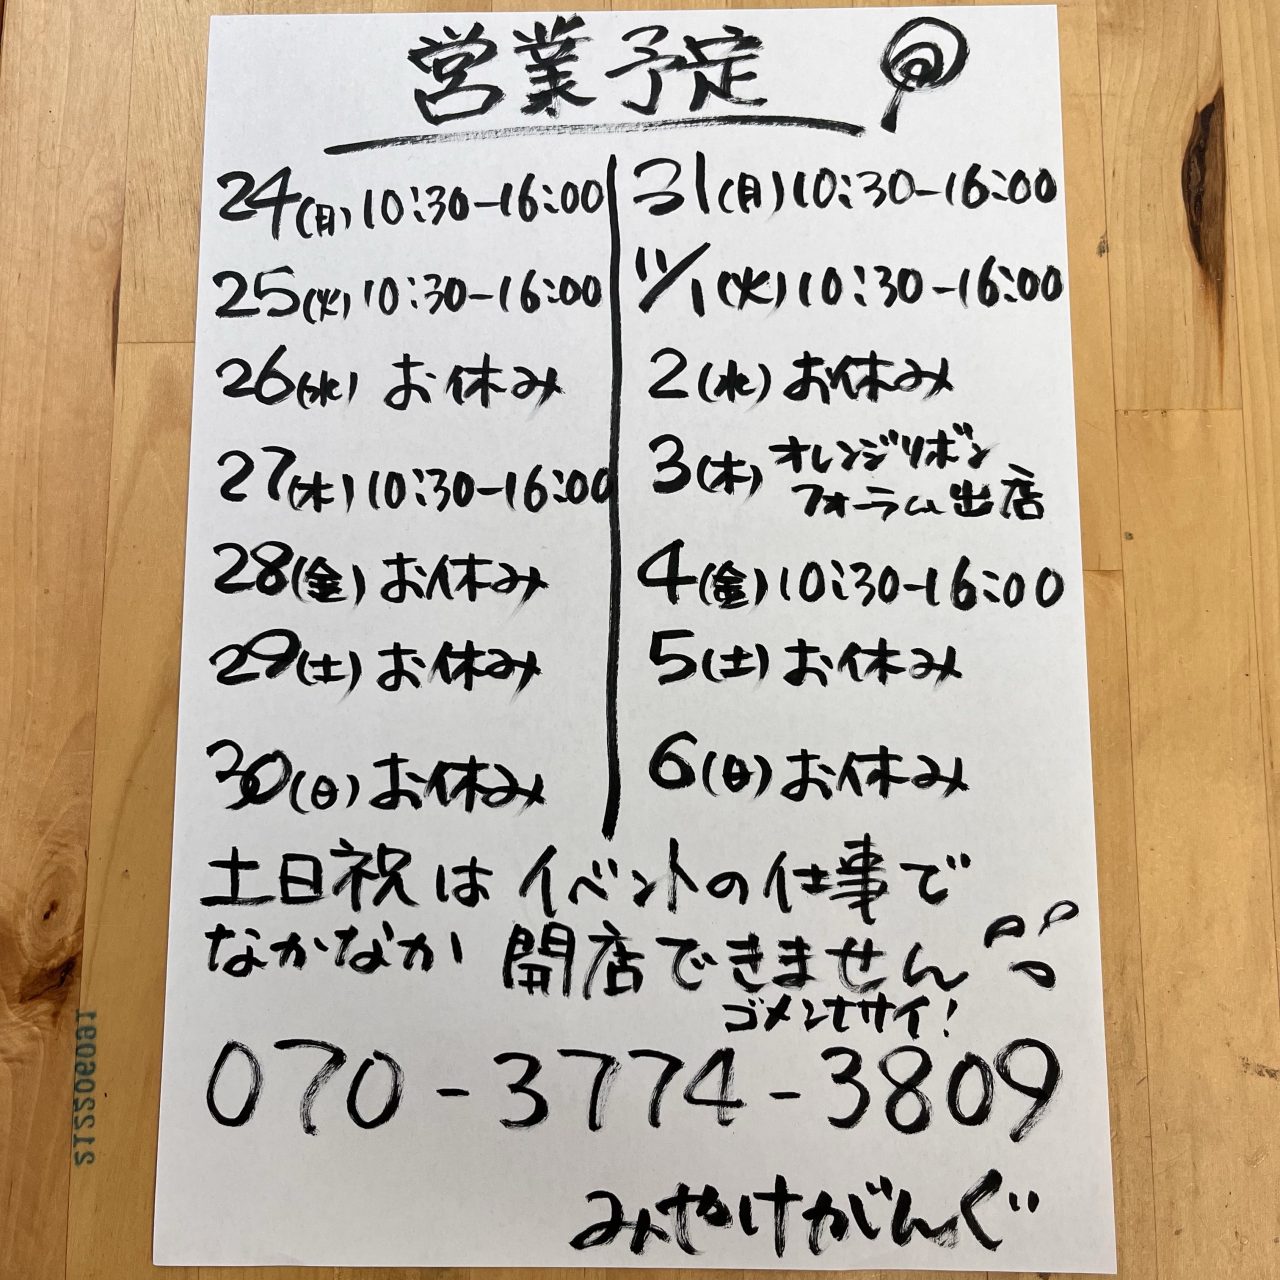 営業予定
24(月)10:30-16:00
25(火)10:30-16:00
26(水)お休み
27(木)10:30-16:00
28(金)お休み
29(土)お休み
30(日)お休み
31(月)10:30-16:00
11/1(火)10:30-16:00
2(水)お休み
3(木)オレンジリボン
フォーラム出店
4(金)10:30-16:00
5(土)お休み
6(日)お休み
土日祝はイベントの仕事で
なかなか開店できません
ゴメンナサイ!
070-3774-3809
みやけがんぐ